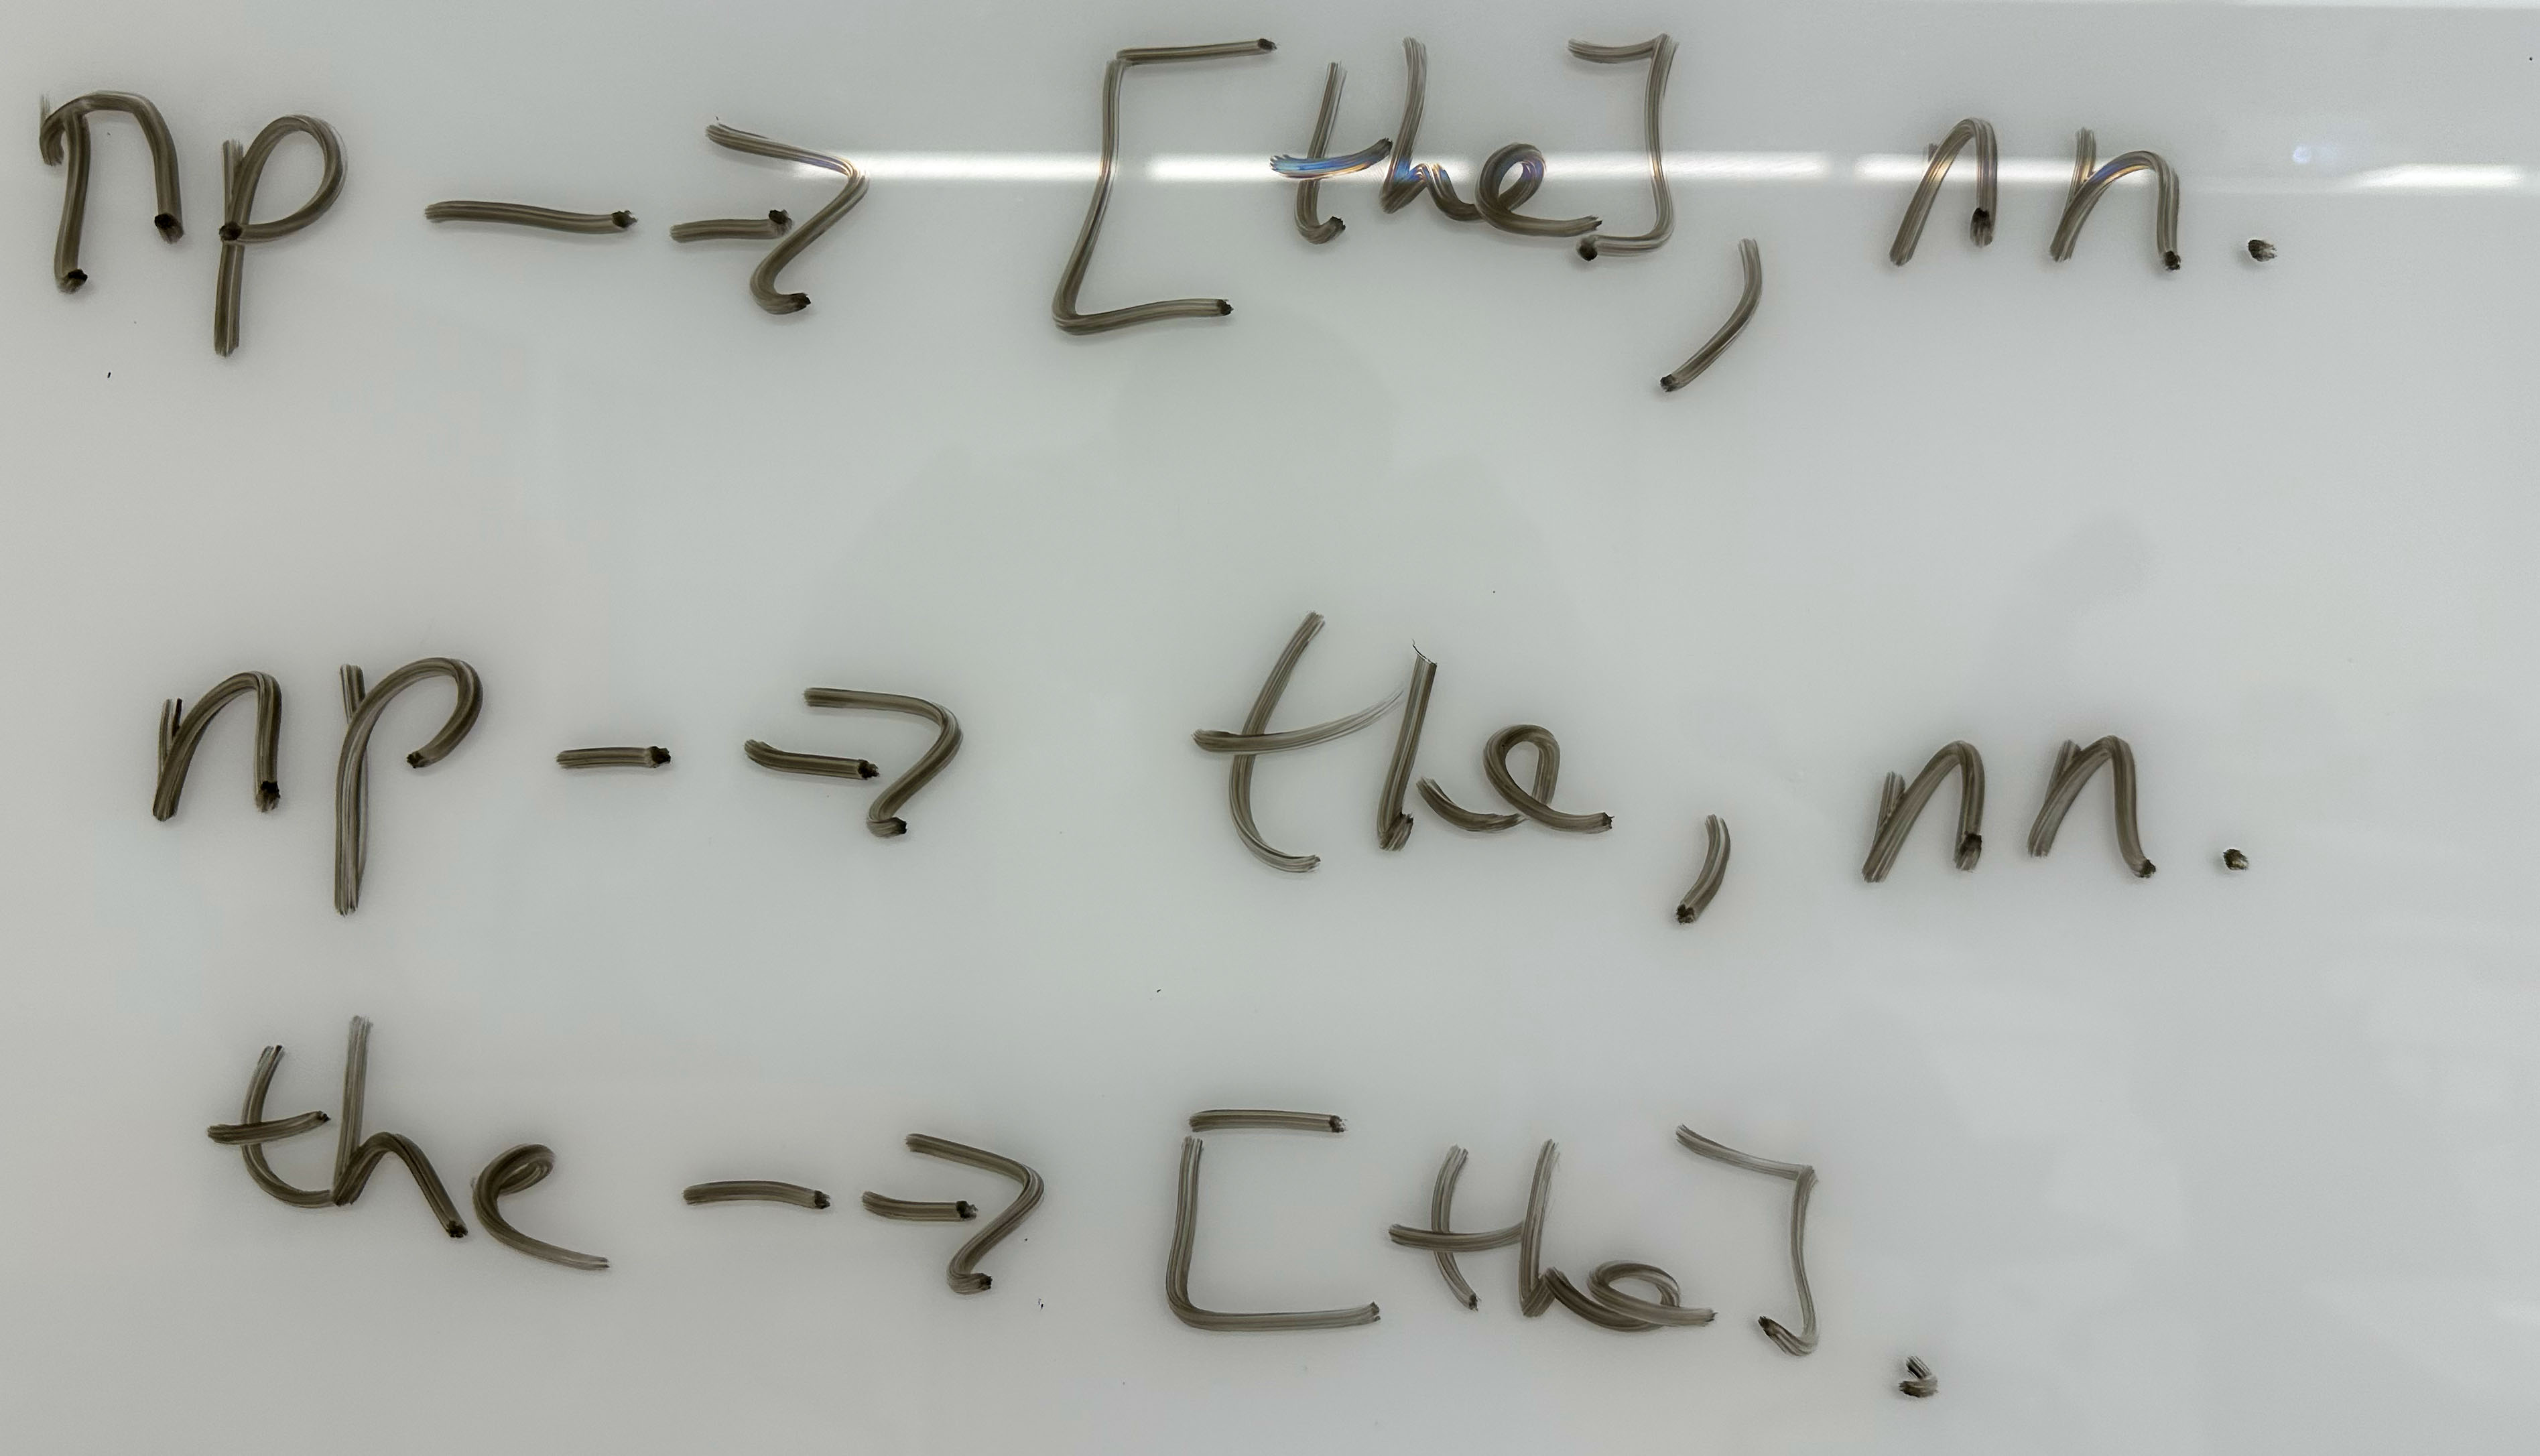 np --> [the], nn.
np --> the, nn.
the --> [the].